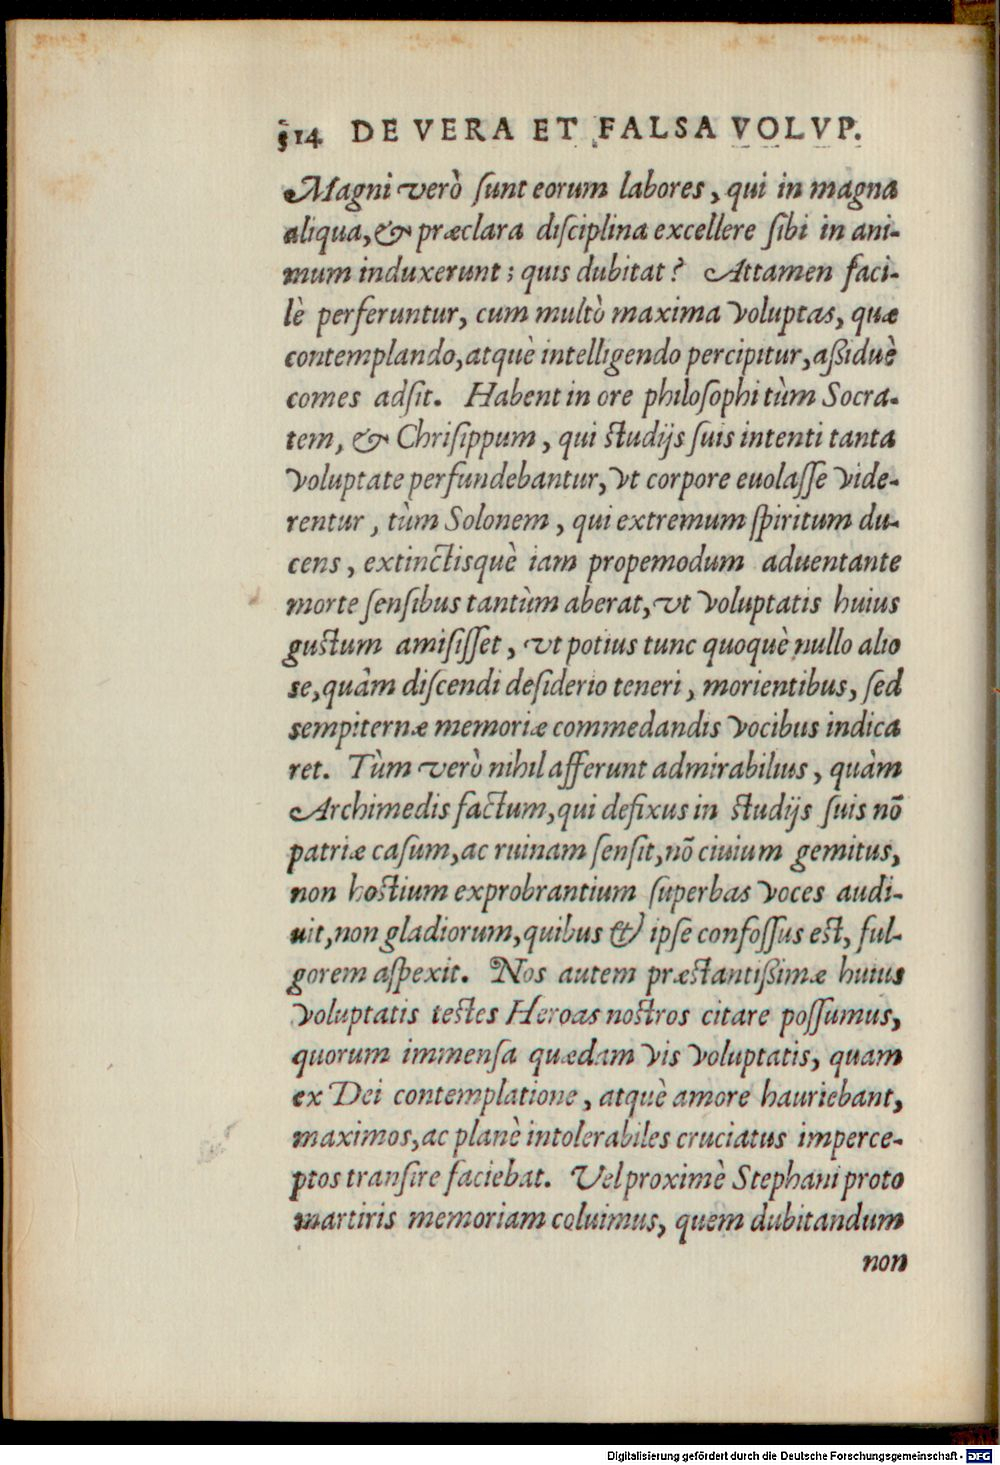 514 DE VERA ET FALSA VOLVP.
Magni verò ſunt eorum labores, qui in magna
aliqua, & præclara diſciplina excellere ſibi in ani-
mum induxerunt; quis dubitat? Attamen faci-
lè perferuntur, cum multò maxima voluptas, quæ
contemplando, atquè intelligendo percipitur, aßiduè
comes adſit. Habent in ore philoſophi tùm Socra-
tem, & Chriſippum, qui ſtudijs ſuis intenti tanta
voluptate perfundebantur, vt corpore euolaſſe vide-
rentur, tùm Solonem, qui extremum ſpiritum du-
cens, extinctisquè iam propemodum aduentante
morte ſenſibus tantùm aberat, vt voluptatis huius
guſtum amiſiſſet, vt potius tunc quoquè nullo alio
se, quàm diſcendi deſiderio teneri, morientibus, ſed
sempiternæ memoriæ commedandis vocibus indica
ret. Tùm verò nihil afferunt admirabilius, quàm
Archimedis factum, qui defixus in ſtudijs ſuis nõ
patriæ caſum, ac ruinam ſenſit, nõ ciuium gemitus,
non hoſtium exprobrantium ſuperbas voces audi-
uit, non gladiorum, quibus & ipſe confoſſus eſt, ful-
gorem aſpexit. Nos autem præſtantißimæ huius
voluptatis teſtes Heroas noſtros citare poſſumus,
quorum immenſa quædam vis voluptatis, quam
ex Dei contemplatione, atquè amore hauriebant,
maximos, ac planè intolerabiles cruciatus imperce-
ptos tranſire faciebat. Vel proximè Stephani proto
martiris memoriam coluimus, quem dubitandum
non
Digitalisierung gefördert durch die Deutsche Forschungsgemeinschaft - DFG